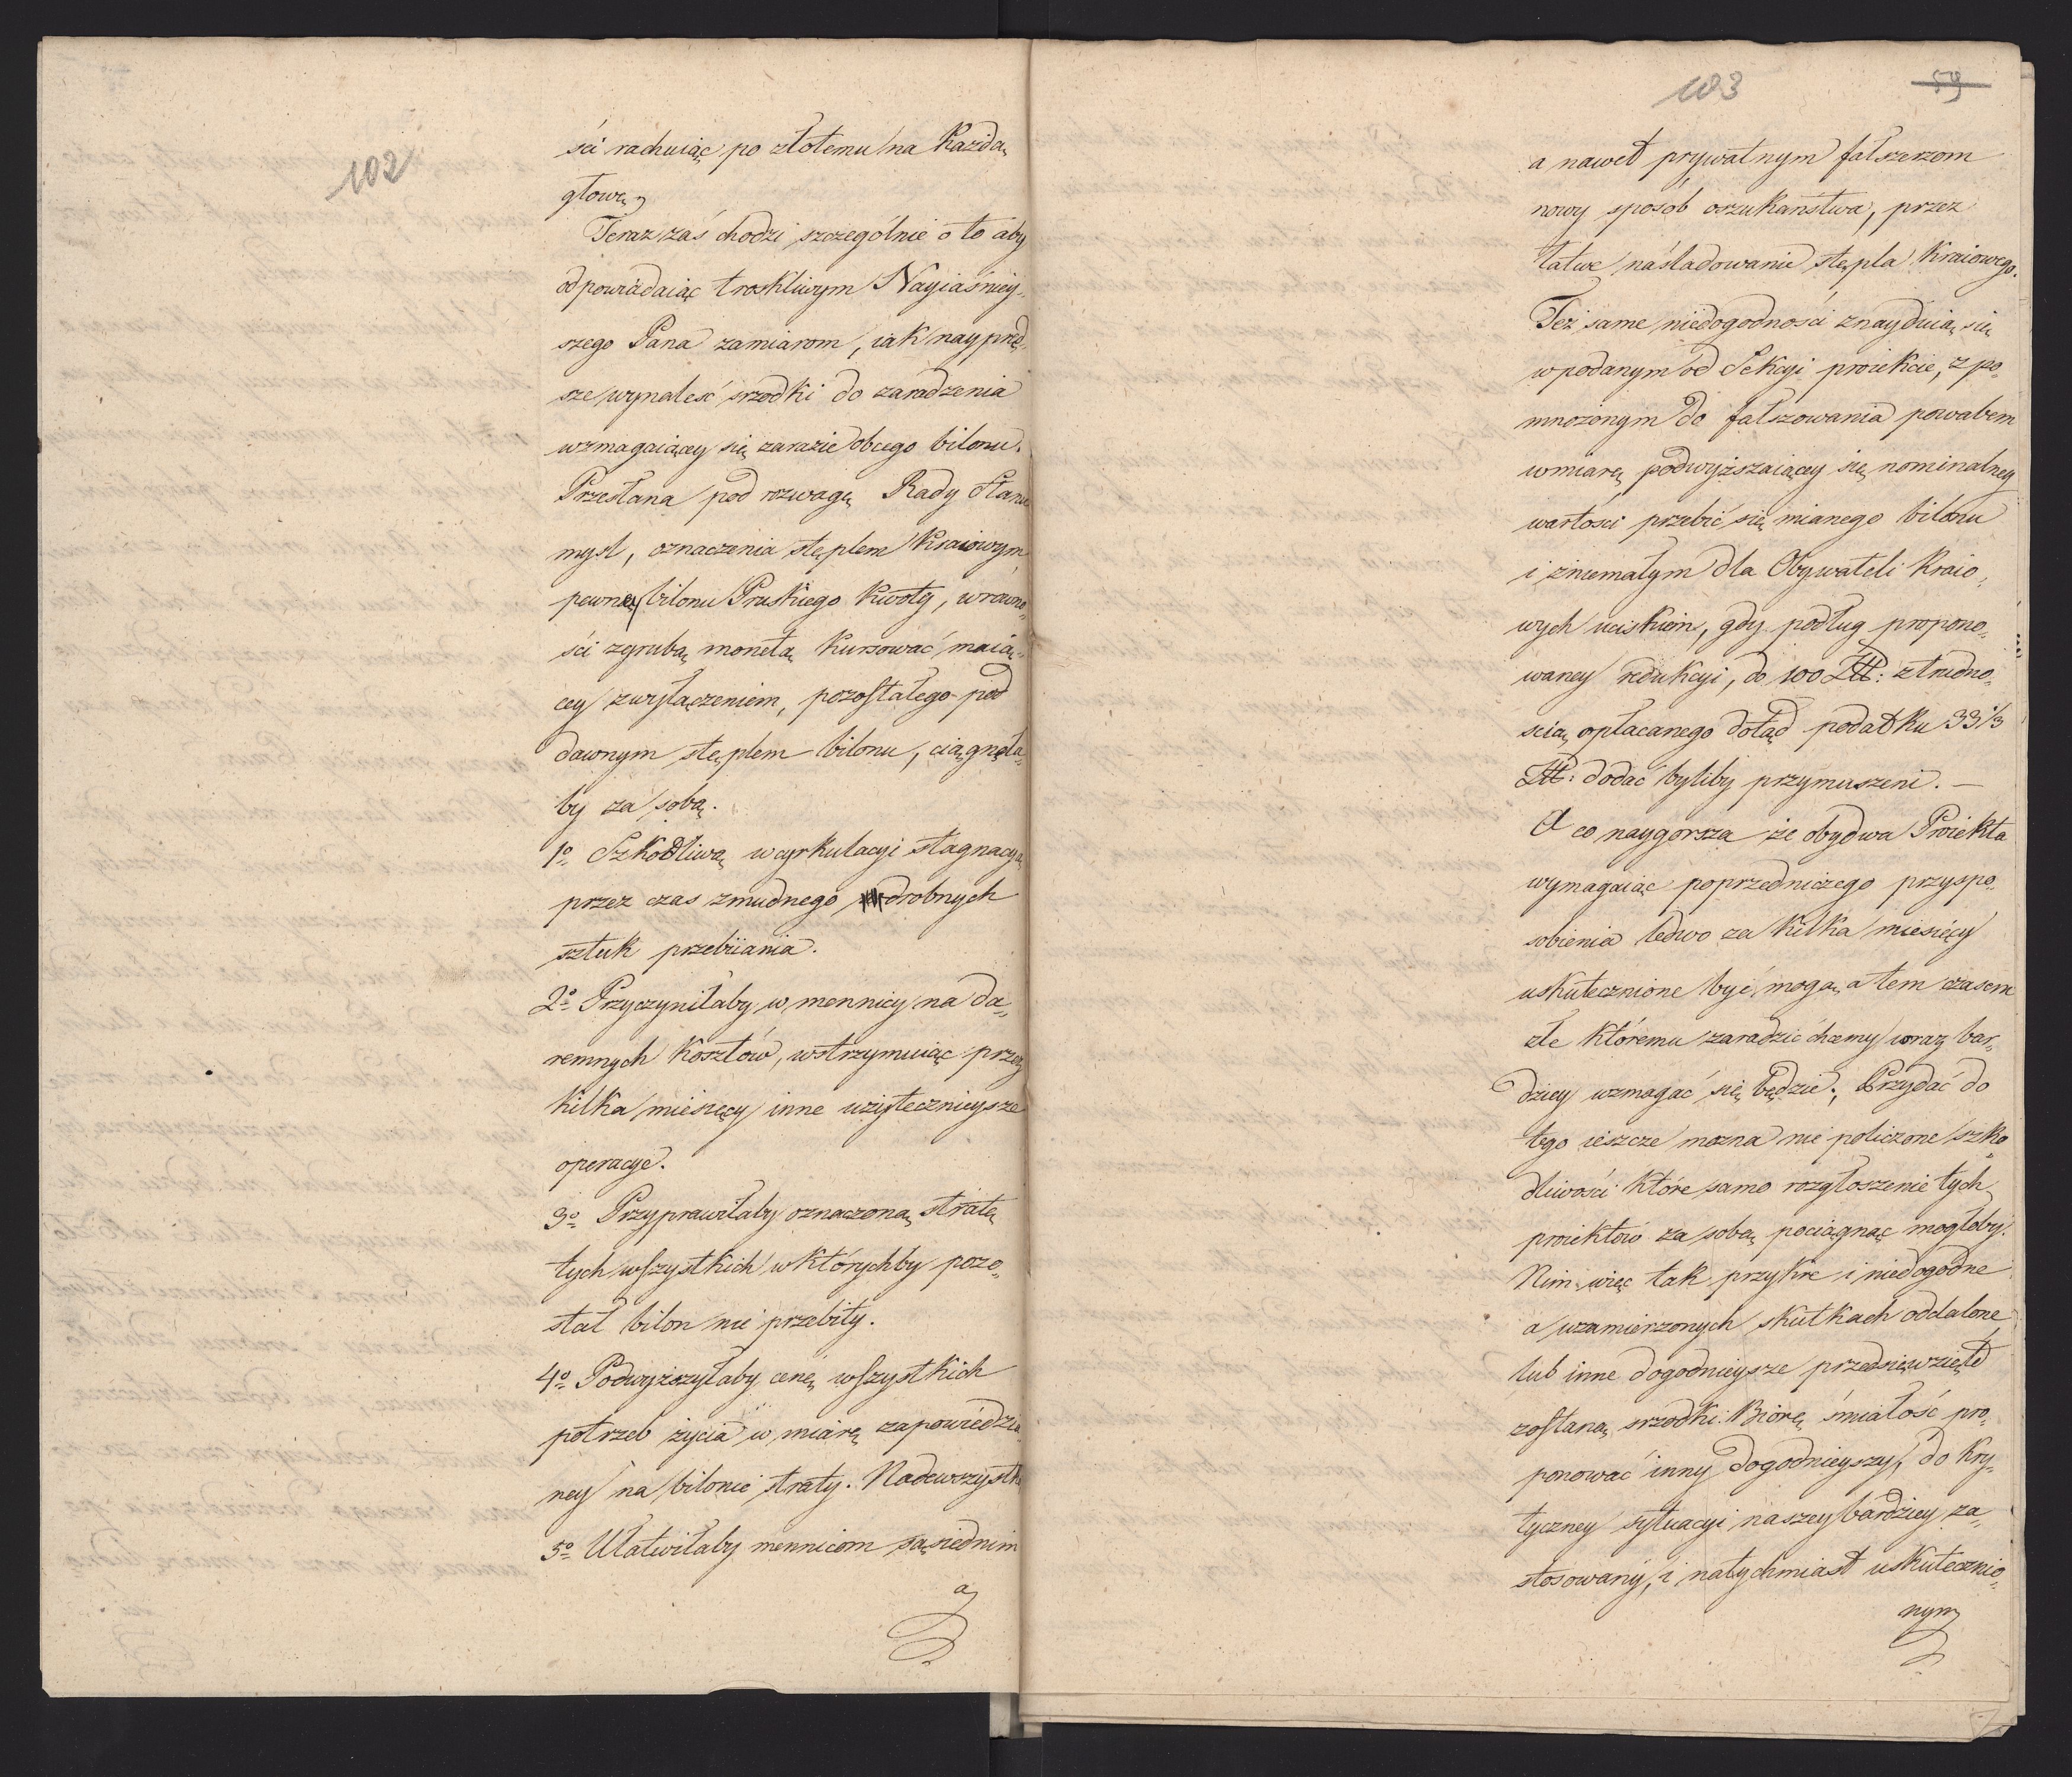 102
ści rachuiąc po złotemu na Każdą
głowę,
Teraz zaś chodzi szczególnie o to aby
odpowiadaiąc troskliwym Nayiaśniey„
szego Pana zamiarom, iak naypręd„
sze wynaleść srzodki do zaradzenia
wzmagaiącey się zarazie obcego bilonu.
Przesłana pod rozwagę Rady Stanu
mysl, oznaczenia stęplem Kraiowym
pewney bilonu Pruskiego Kwoty, w równo„
ści z grubą monetą Kursować maią„
cey z wyłączeniem, pozostałego pod
dawnym stęplem bilonu, ciągnęła„
by za sobą.
1º Szkodliwą w cyrkulacyi stagnacyą
przez czas zmudnego drobnych
sztuk przebiiania.
2º Przyczyniłaby w mennicy na da„
remnych Kosztów, wstrzymuiąc przez
kilka miesięcy inne użytecznieysze
operacye.
3º Przyprawiłaby oznaczoną stratę
tych wszystkich w którychby pozo„
stał bilon nie przebity.
4º Podwyższyłaby cenę wszystkich
potrzeb życia w miarę zapowiedzia„
ney na bilonie straty. Nadewszystko
5º Ułatwiłaby mennicom sąsiednim
a
103
59
a nawet prywatnym fałszerzom
nowy sposób oszukaństwa, przez
łatwe naśladowanie stępla Kraiowego.
Też same niedogodności znayduią się
w podanym od Sekcyi proiekcie, z po„
mnożonym do fałszowania powabem
w miarę podwyższaiącey się nominalney
wartości przebić się mianego bilonu
i z niemałym dla Obywateli Kraio„
wych uciskiem, gdy podług propono„
waney redukcyi, do 100 Złt: z trudno„
scią opłacanego dotąd podatku 33 1/3
Złt: dodać byliby przymuszeni. —
A co naygorsza że obydwa Proiekta
wymagaiąc poprzedniczego przyspo„
sobienia ledwo za kilka miesięcy
uskutecznione być mogą, a tem czasem
złe któremu zaradzić chcemy coraz bar„
dziey wzmagać się będzie; Przydać do
tego ieszcze można nie policzone szko„
dliwości które samo rozgłoszenie tych
proiektów za sobą pociągnąć mogłoby.
Nim więc tak przykre i niedogodne
a w zamierzonych skutkach oddalone
lub inne dogodnieysze przedsięwzięte
zostaną srzodki. Biorę śmiałość pro„
ponować inny dogodnieyszy, do kry„
tyczney sytuacyi naszey bardziey za„
stosowany, i natychmiast uskutecznio„
nym